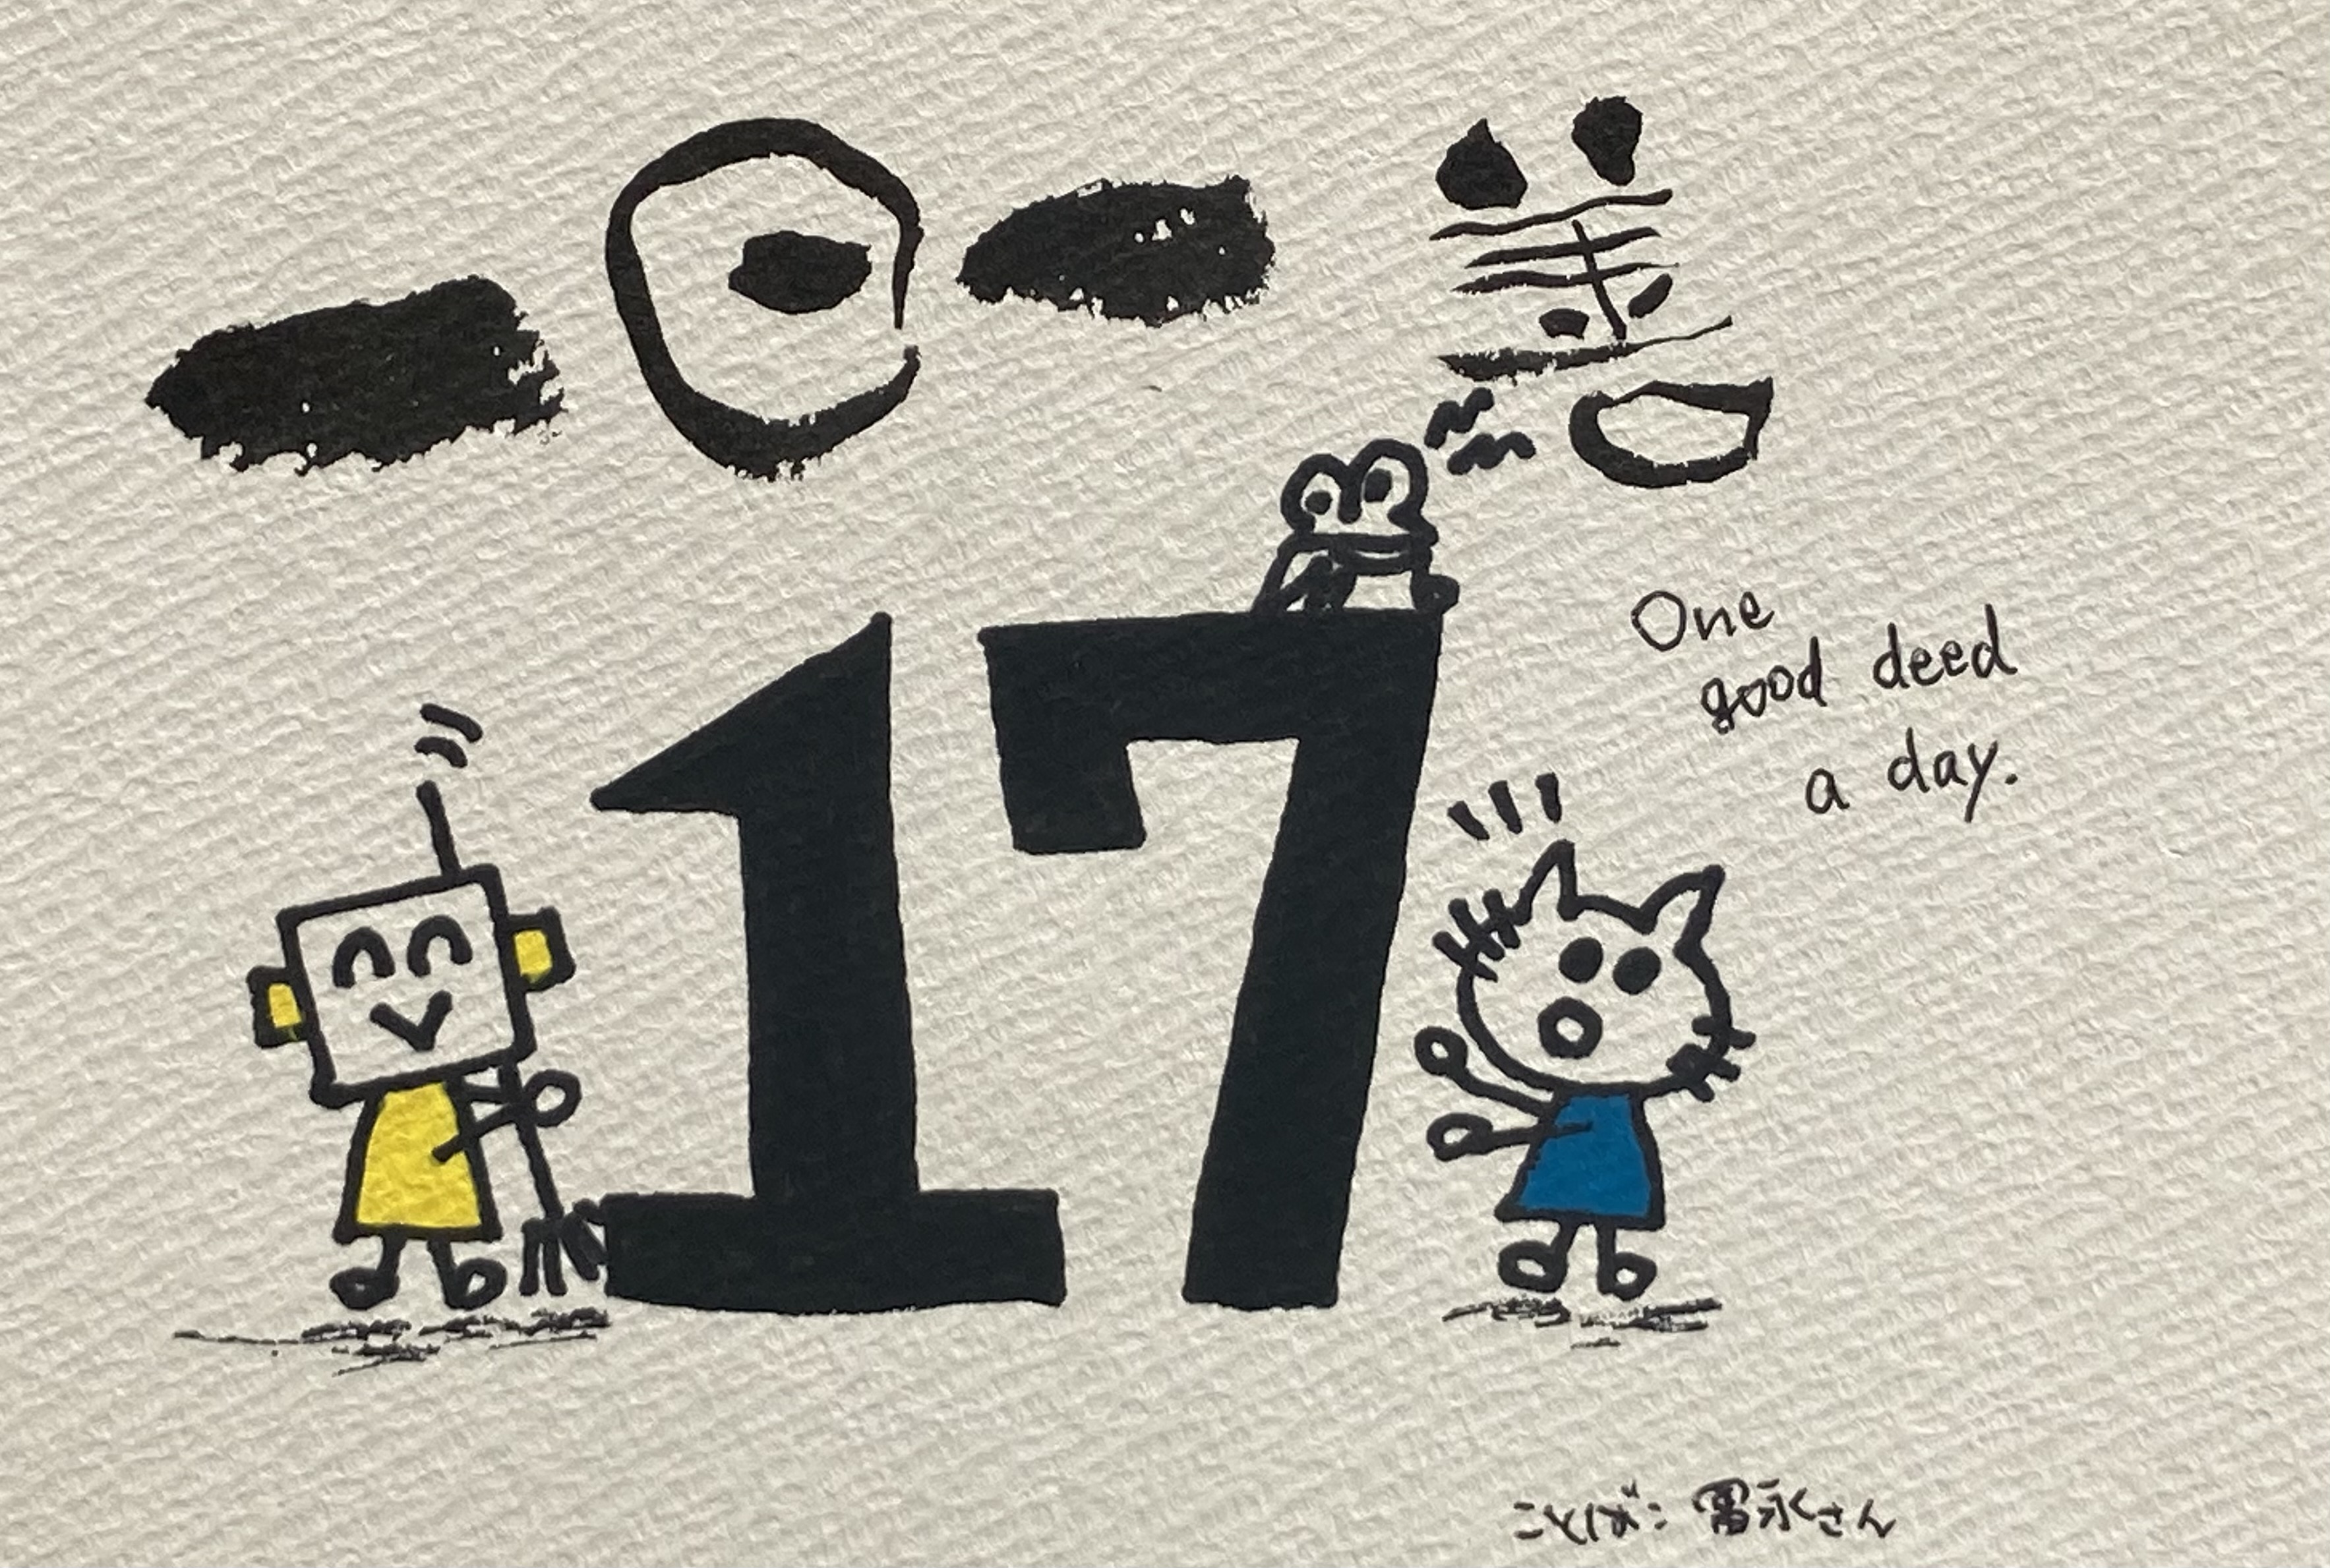 一日一善
17
One
good deed
a day.
ことば：冨永さん